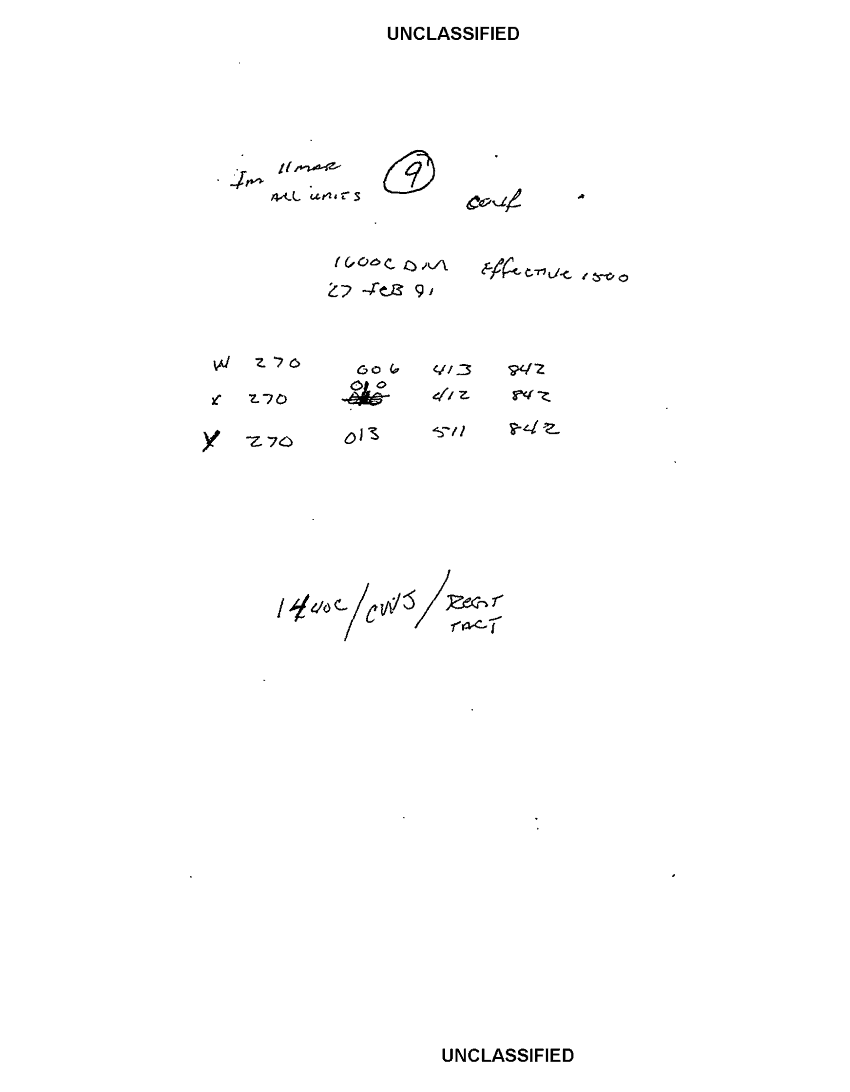 UNCLASSIFIED
Im 11 MAR 9
ALL UNITS conf
1600C DM Effective 1500
27 FEB 91
W 270 006 413 842
010
X 270 412 842
Y 270 013 511 842
1440C/CWJ/REGT
TACT
UNCLASSIFIED